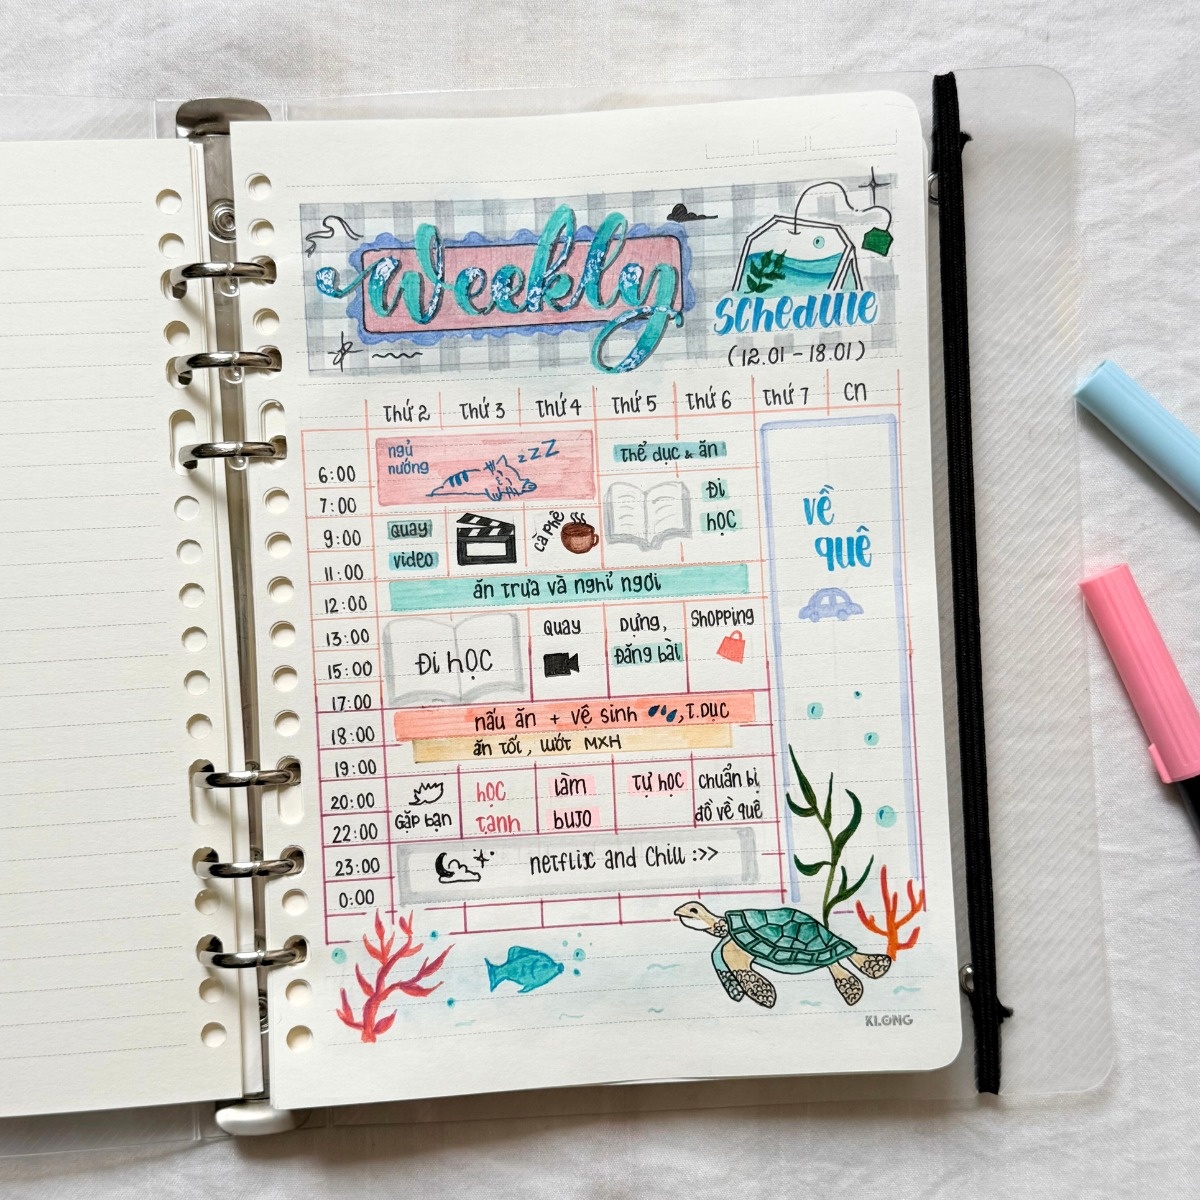 Weekly
schedule
(12.01 - 18.01)
Thứ 2 Thứ 3 Thứ 4 Thứ 5 Thứ 6 Thứ 7 CN
ngủ
nướng
zzZ
Thể dục & ăn
6:00
7:00
Đi
học
9:00
Quay
video
cà phê
về
quê
11:00
ăn trưa và nghỉ ngơi
12:00
13:00
Đi học
Quay
Dựng,
Đăng bài
Shopping
15:00
17:00
nấu ăn + vệ sinh , T.Dục
18:00
ăn tối, lướt MXH
19:00
20:00
22:00
Gặp bạn
học
Tanh
làm
bujo
Tự học
chuẩn bị
đồ về quê
23:00
netflix and chill :>>
0:00
KLONG